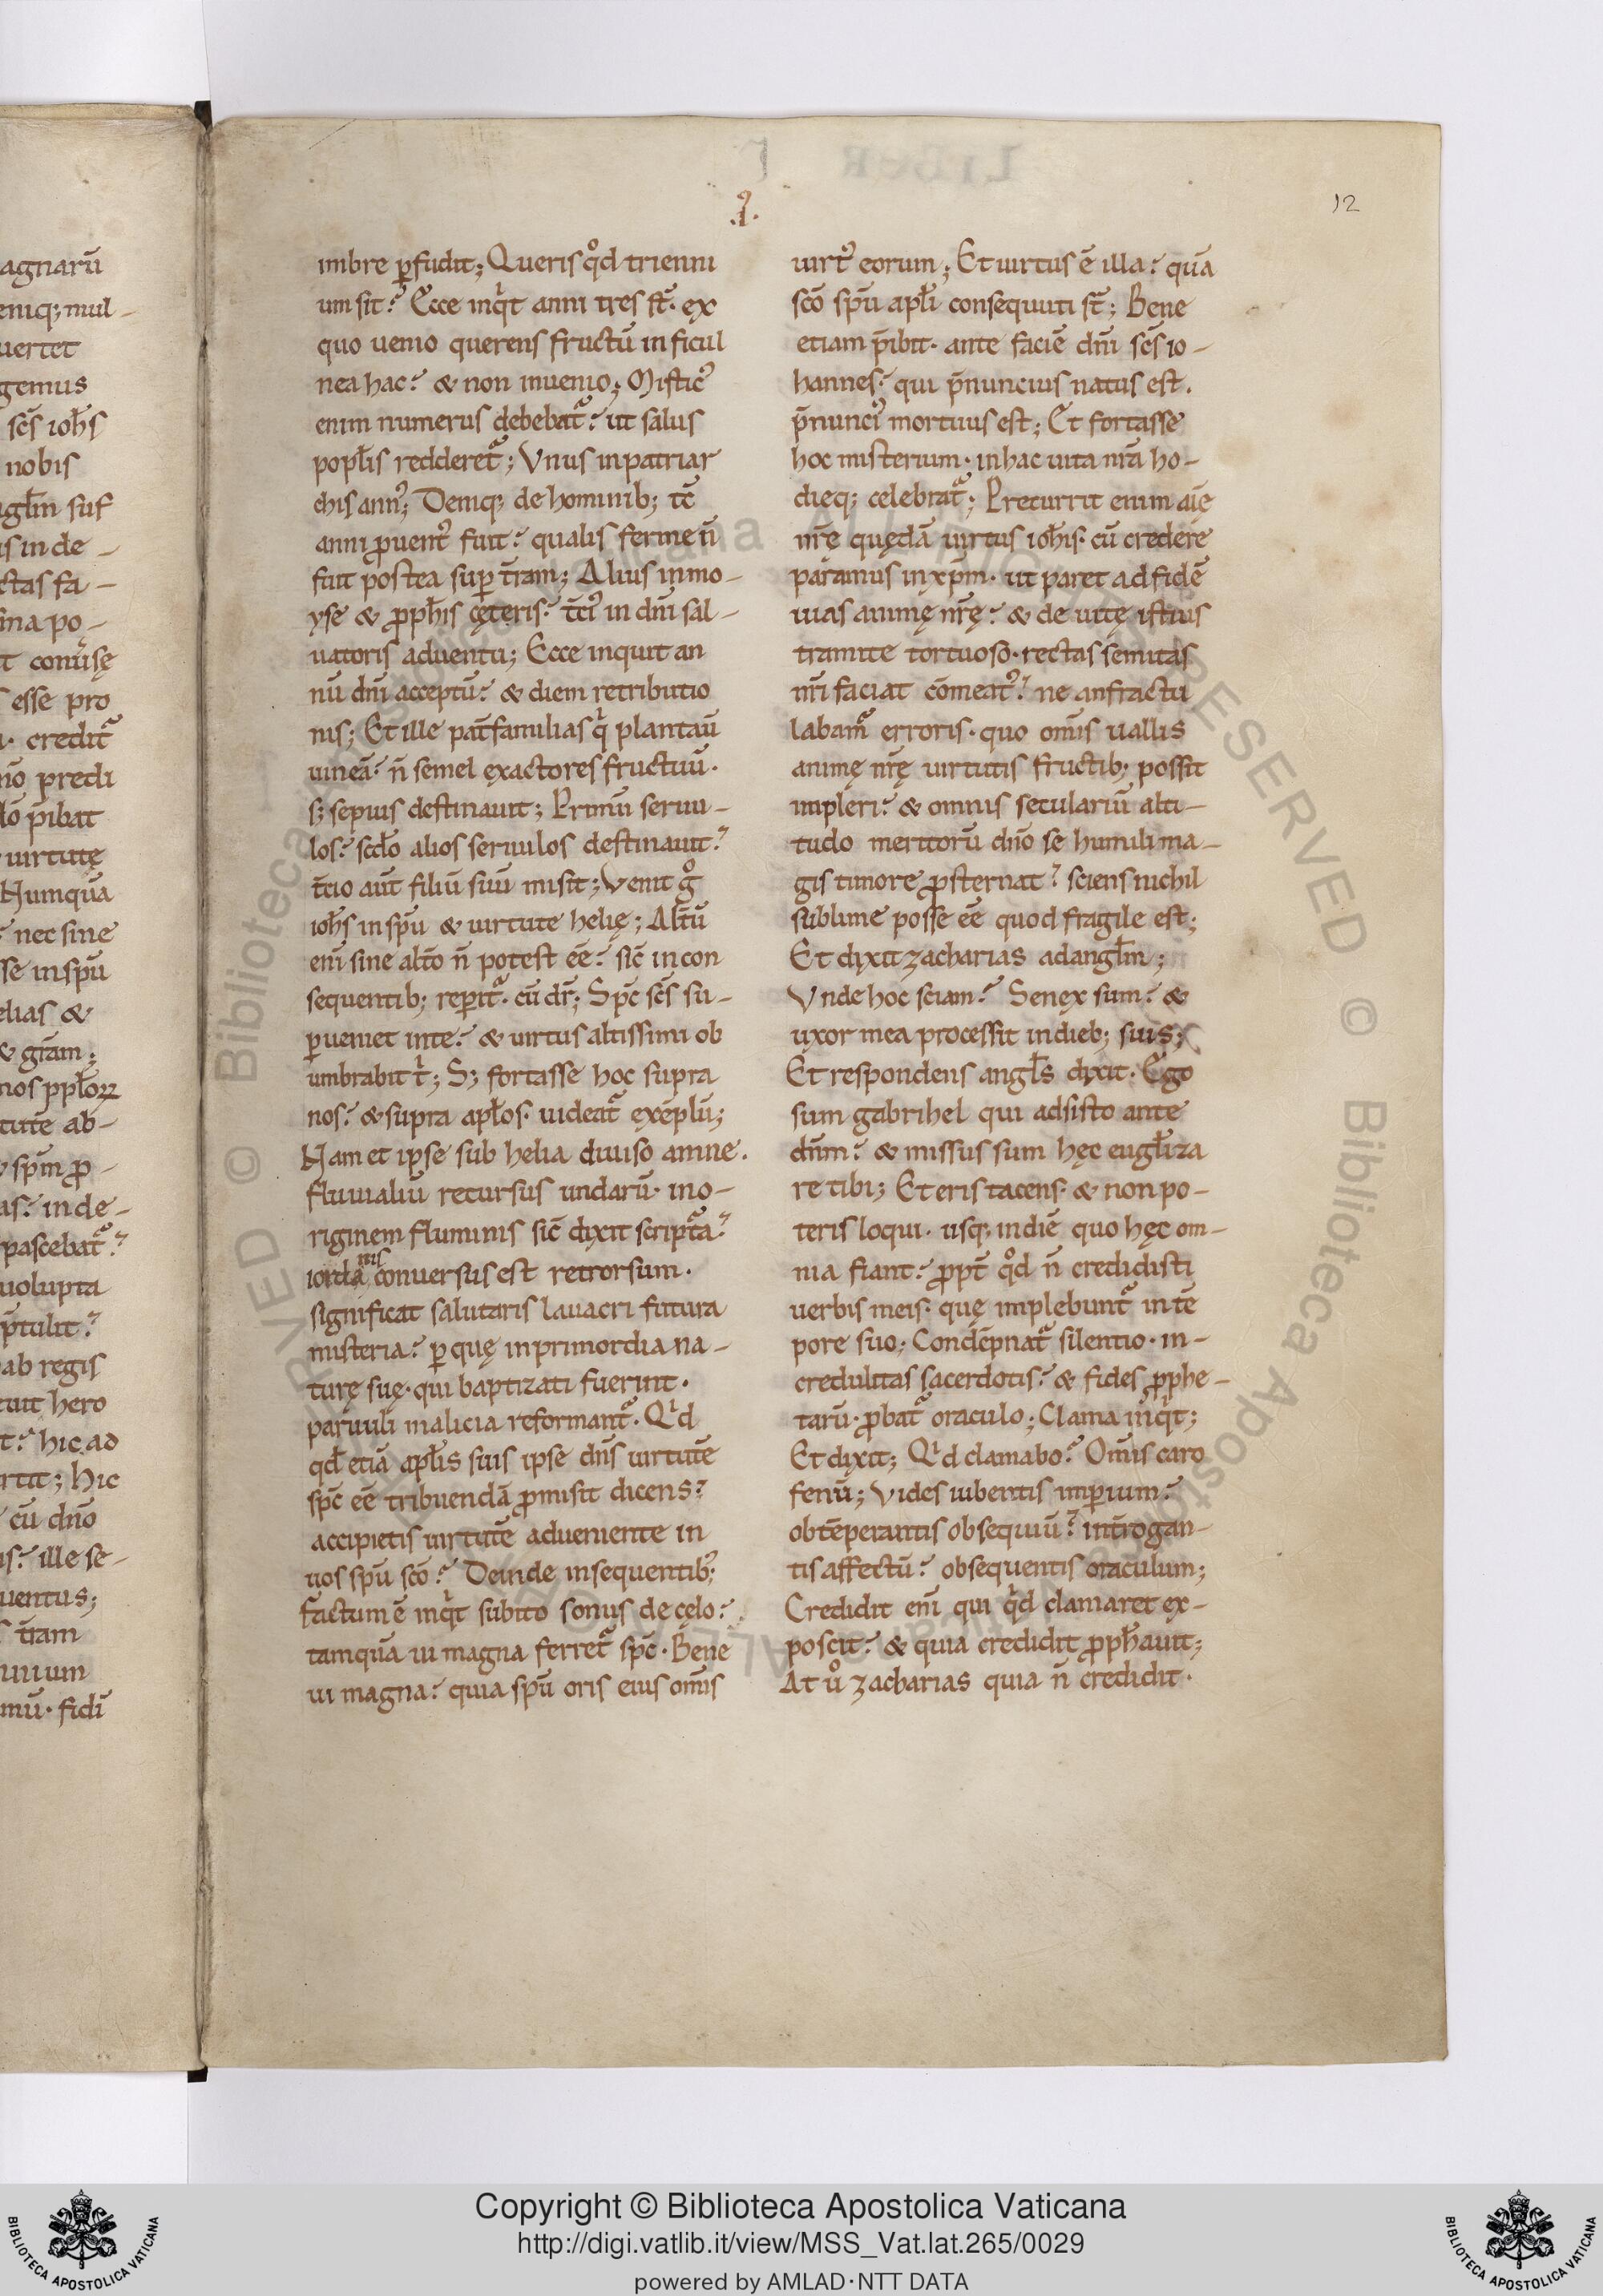 LIBER I
12
.I.
imbre ꝑfudit; Queris qͦd trienni
um sit? Ecce inqͥt anni tres st̄. ex
quo uenio querens fructū in ficul
nea hac? & non inuenio; Misticꝰ
enim numerus debebat᷑? ut salus
popłis redderet᷑; Vnus in patriar
chis annꝰ; Deniq; de hominib; tc̄
anni ꝓuentꝰ fuit? qualis ferme n̄
fuit postea suꝑ t̄ram; Alius in mo-
yse & ꝓpħis cęteris? t̄ciꝰ in dn̄i sal-
uatoris aduentu; Ecce inquit an
nū dn̄i acceptū? & diem retributio
nis; Et ille pat̄familias qͥ plantauı̄
uineā? n̄ semel exactores fructuū.
s; sepius destinauit; Primū seruu-
los? scd̄o alios seruulos destinauit?
t̄cio aut̄ filiū suū misit; Venit gͦ
ioħs in spū & uirtute helię; Alt̄ū
enı̄ sine alt̄o n̄ potest eē? sic̄ in con
sequentib; reꝑit᷑. cū dr̄; Spc̄ sc̄s su-
ꝑueniet in te? & uirtus altissimi ob
umbrabit tͥ; S; fortasse hoc supra
nos? & supra apłos. uideat᷑ exēplū;
Nam et ipse sub helia diuiso amne.
fluuialiū recursus undarū. in o-
riginem fluminis sic̄ dixit script᷑a?
iordanis conuersus est retrorsum.
significat salutaris lauacri futura
misteria? ꝑ quę in primordia na-
turę suę. qui baptizati fuerint.
paruuli malicia reformant᷑. Qͥd
qđ etiā apłis suis ipse dn̄s uirtutē
spc̄ eē tribuendā ꝓmisit dicens?
accipietis uirtutē adueniente in
uos spū scō? Deinde in sequentibꝰ;
factum ē inqͥt subito sonus de cęlo?
tamquā ui magna ferret᷑ spc̄. Bene
ui magna? quia spū oris eius om̄is
uirtꝰ eorum; Et uirtus ē illa? quā
scō spū apłi consequuti st̄; Bene
etiam p̄ibit. ante faciē dn̄i sc̄s io-
hannes? qui p̄nuncius natus est.
p̄nunciꝰ mortuus est; Et fortasse
hoc misterium. in hac uita nr̄a ho-
dieq; celebrat᷑; Precurrit enim aı̄e
nr̄e quędā uirtus ioħis. cū credere
paramus in xp̄m. ut paret ad fidē
uias animę nr̄ę? & de uitę istius
tramite tortuoso. rectas semitas
nr̄i faciat cōmeatꝰ? ne anfractu
labam᷑ erroris. quo om̄is uallis
animę nr̄ę uirtutis fructib; possit
impleri? & omnis seculariū alti-
tudo meritorū dn̄o se humili ma-
gis timore ꝓsternat? sciens nichil
sublime posse eē quod fragile est;
Et dixit zacharias ad angłm;
Vnde hoc sciam? Senex sum? &
uxor mea processit in dieb; suis;
Et respondens angłs dixit. Ego
sum gabrihel qui adsisto ante
dn̄m? & missus sum hęc eugłiza
re tibi; Et eris tacens. & non po-
teris loqui. usq; in diē quo hęc om-
nia fiant? ꝓpt̄ qͦd n̄ credidisti
uerbis meis. quę implebunt᷑ in tē
pore suo; Condēpnat᷑ silentio. in-
credulitas sacerdotis? & fides ꝓphe-
tarū. ꝓbat᷑ oraculo; Clama inqͥt;
Et dixit; Qͥd clamabo? Om̄is caro
fenū; Vides iubentis imꝑium?
obtēperantis obsequiū? int̄rogan-
tis affectū? obsequentis oraculum;
Credidit enı̄ qui qͥd clamaret ex-
poscit? & quia credidit ꝓpħauit;
At uͦ zacharias quia n̄ credidit.
Copyright © Biblioteca Apostolica Vaticana
http://digi.vatlib.it/view/MSS_Vat.lat.265/0029
powered by AMLAD·NTT DATA
BIBLIOTECA APOSTOLICA VATICANA
BIBLIOTECA APOSTOLICA VATICANA